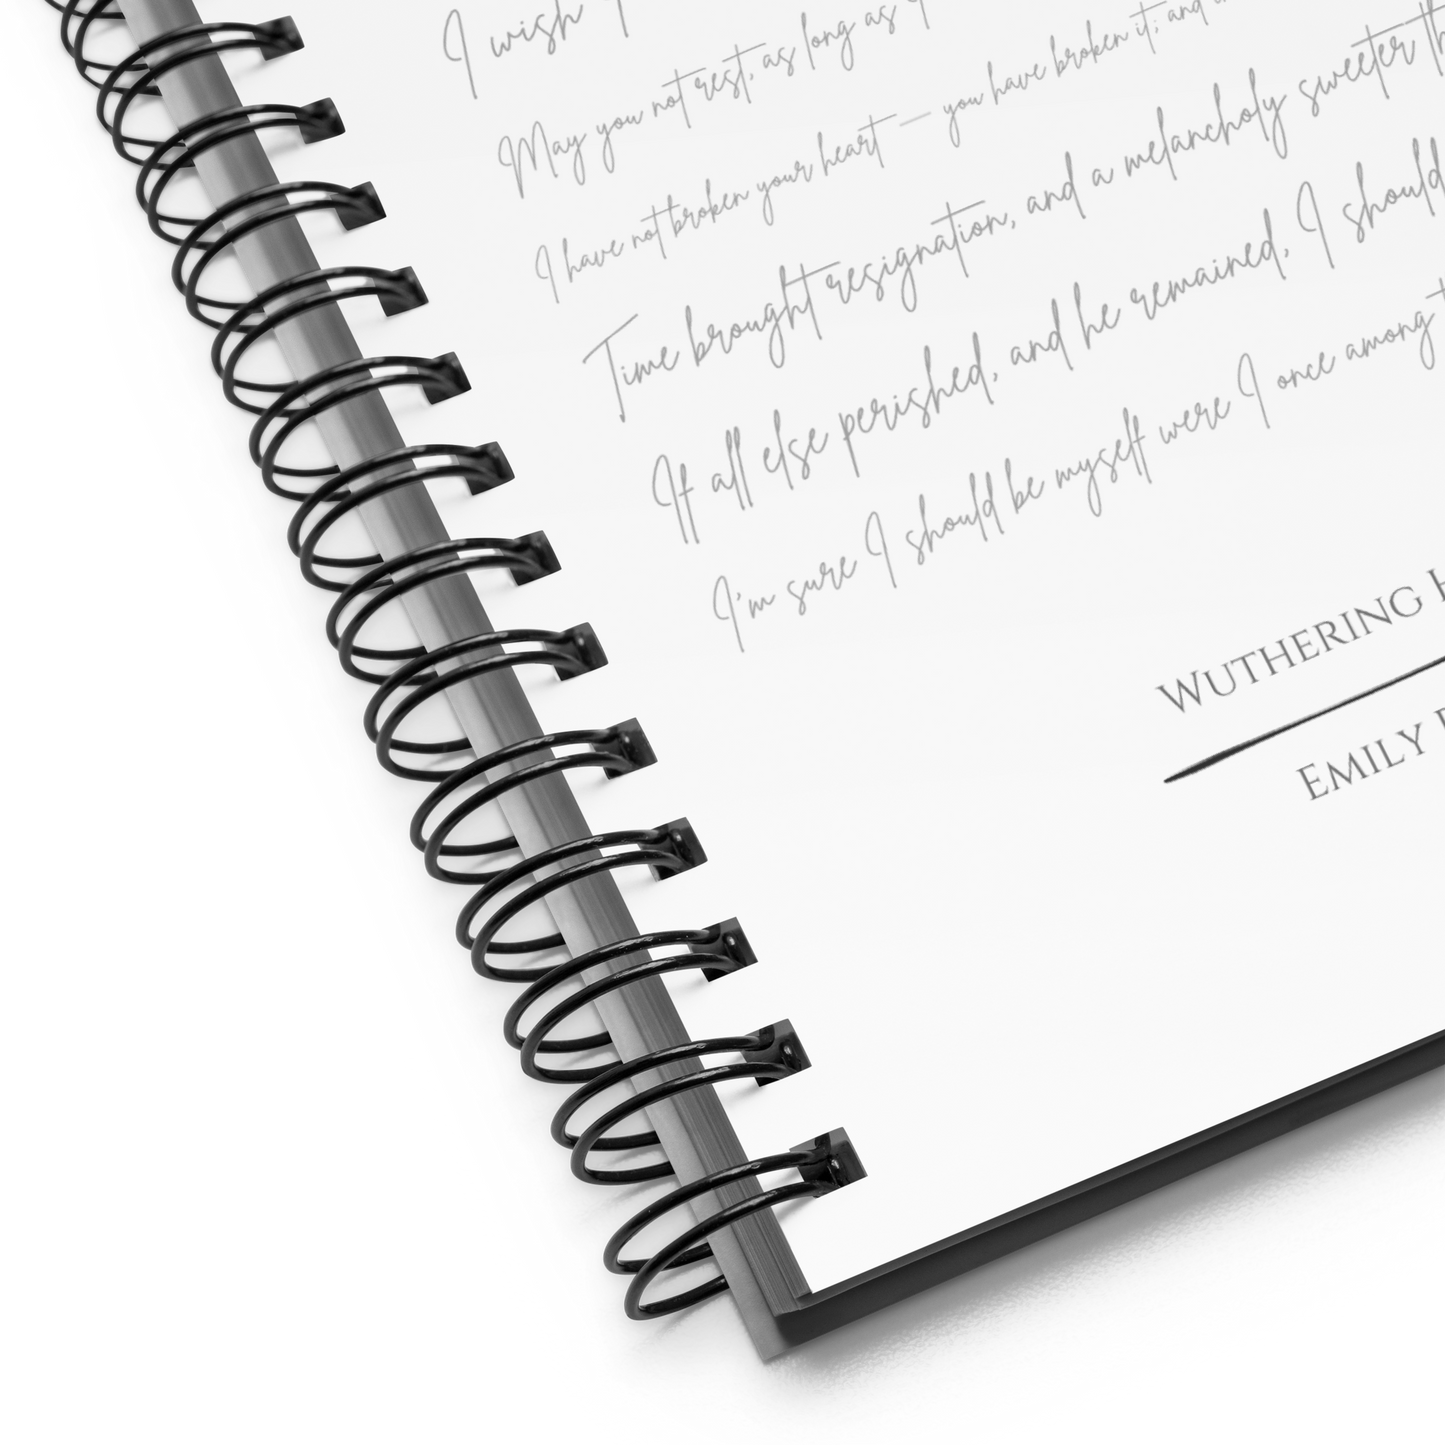 I wish
May you not rest, as long as
I have not broken your heart — you have broken it; and
Time brought resignation, and a melancholy sweeter
If all else perished, and he remained, I should
I'm sure I should be myself were I once among
WUTHERING
EMILY